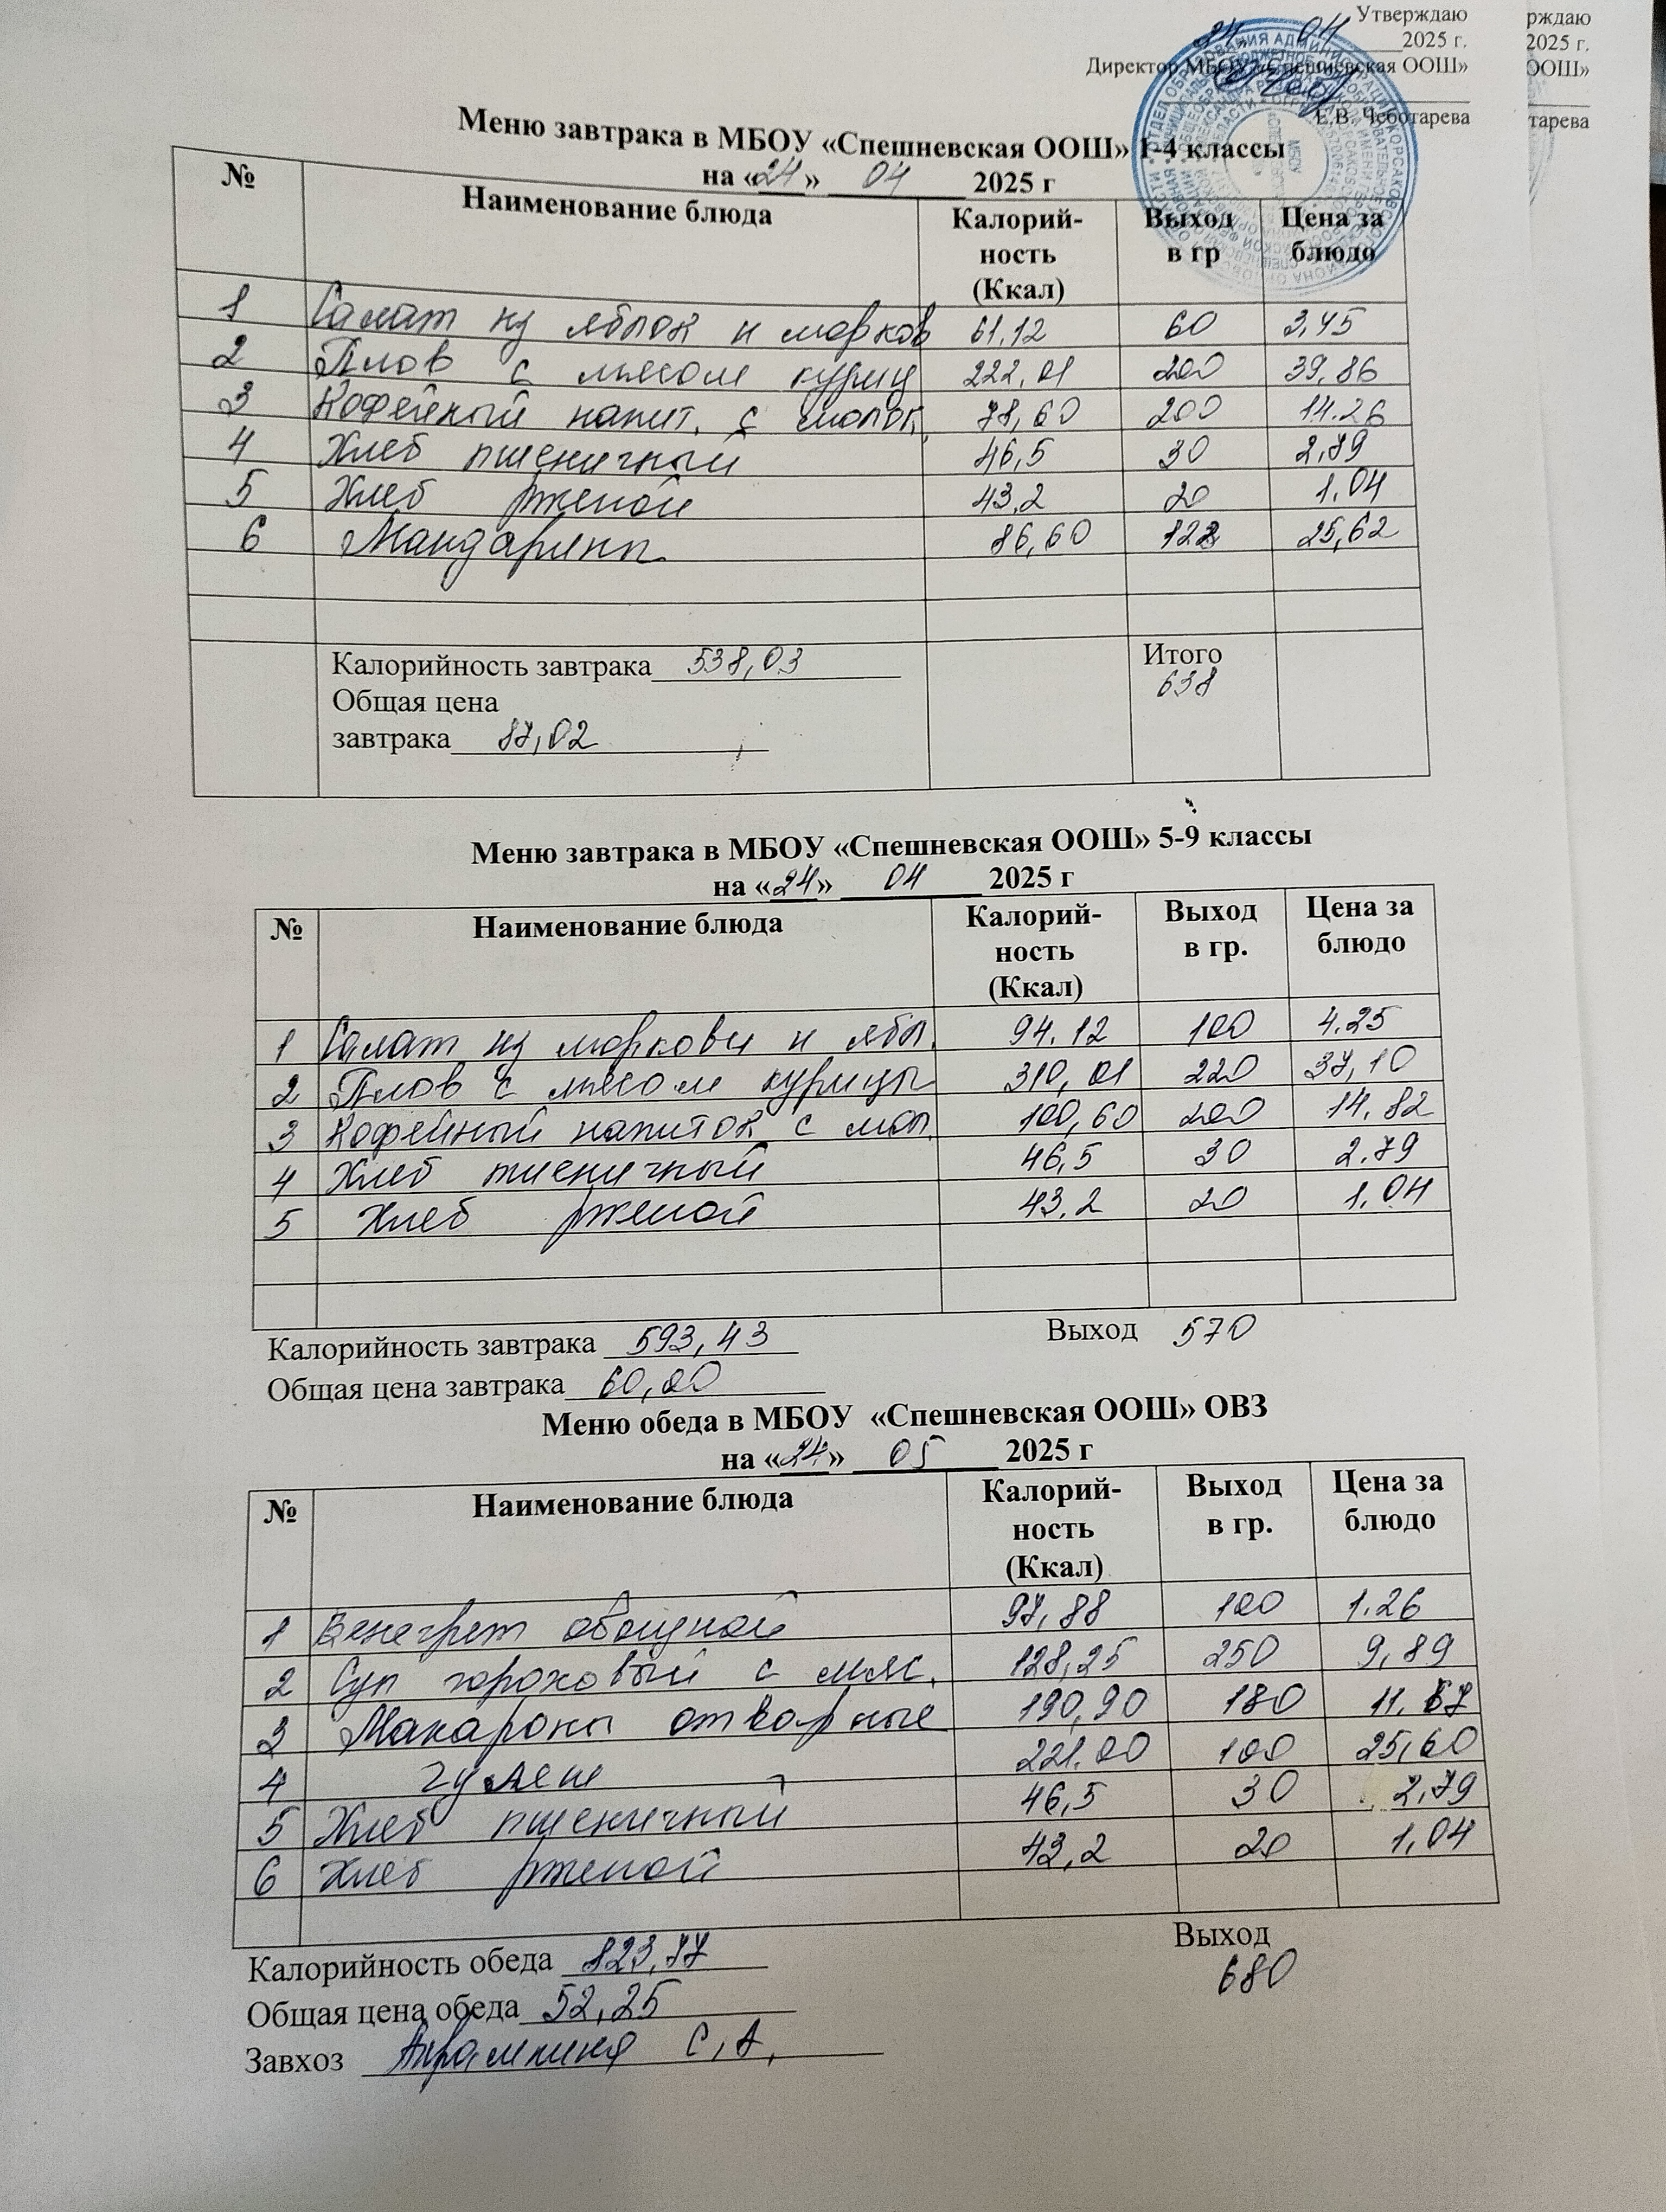 Утверждаю рждаю
24 04 2025 г. 2025 г.
Директор МБОУ «Спешневская ООШ» ООШ»
Е.В. Чеботарева тарева
Меню завтрака в МБОУ «Спешневская ООШ» 1-4 классы
на «24» 04 2025 г
№ Наименование блюда Калорий-ность (Ккал) Выход в гр Цена за блюдо
1 Салат из яблок и морков 61.12 60 3,45
2 Плов с мясом куриц 222,01 200 39,86
3 Кофейный напит. с молок. 78,60 200 14.26
4 Хлеб пшеничный 46,5 30 2,79
5 Хлеб ржаной 43,2 20 1,04
6 Мандарины 86,60 128 25,62
Калорийность завтрака 538,03 Итого
Общая цена 638
завтрака 87,02
Меню завтрака в МБОУ «Спешневская ООШ» 5-9 классы
на «24» 04 2025 г
№ Наименование блюда Калорий-ность (Ккал) Выход в гр. Цена за блюдо
1 Салат из моркови и ябл. 94.12 100 4.25
2 Плов с мясом курицы 310,01 220 37,10
3 Кофейный напиток с мол. 100,60 200 14,82
4 Хлеб пшеничный 46,5 30 2.79
5 Хлеб ржаной 43,2 20 1,04
Калорийность завтрака 593,43 Выход 570
Общая цена завтрака 60,00
Меню обеда в МБОУ «Спешневская ООШ» ОВЗ
на «24» 05 2025 г
№ Наименование блюда Калорий-ность (Ккал) Выход в гр. Цена за блюдо
1 Венегрет овощной 97,88 100 1.26
2 Суп гороховый с мяс. 128,25 250 9,89
3 Макароны отварные 190,90 180 11,67
4 гуляш 221.00 100 25,60
5 Хлеб пшеничный 46,5 30 2,79
6 Хлеб ржаной 43,2 20 1,04
Калорийность обеда 823,77 Выход
Общая цена обеда 52,25 680
Завхоз С.А.